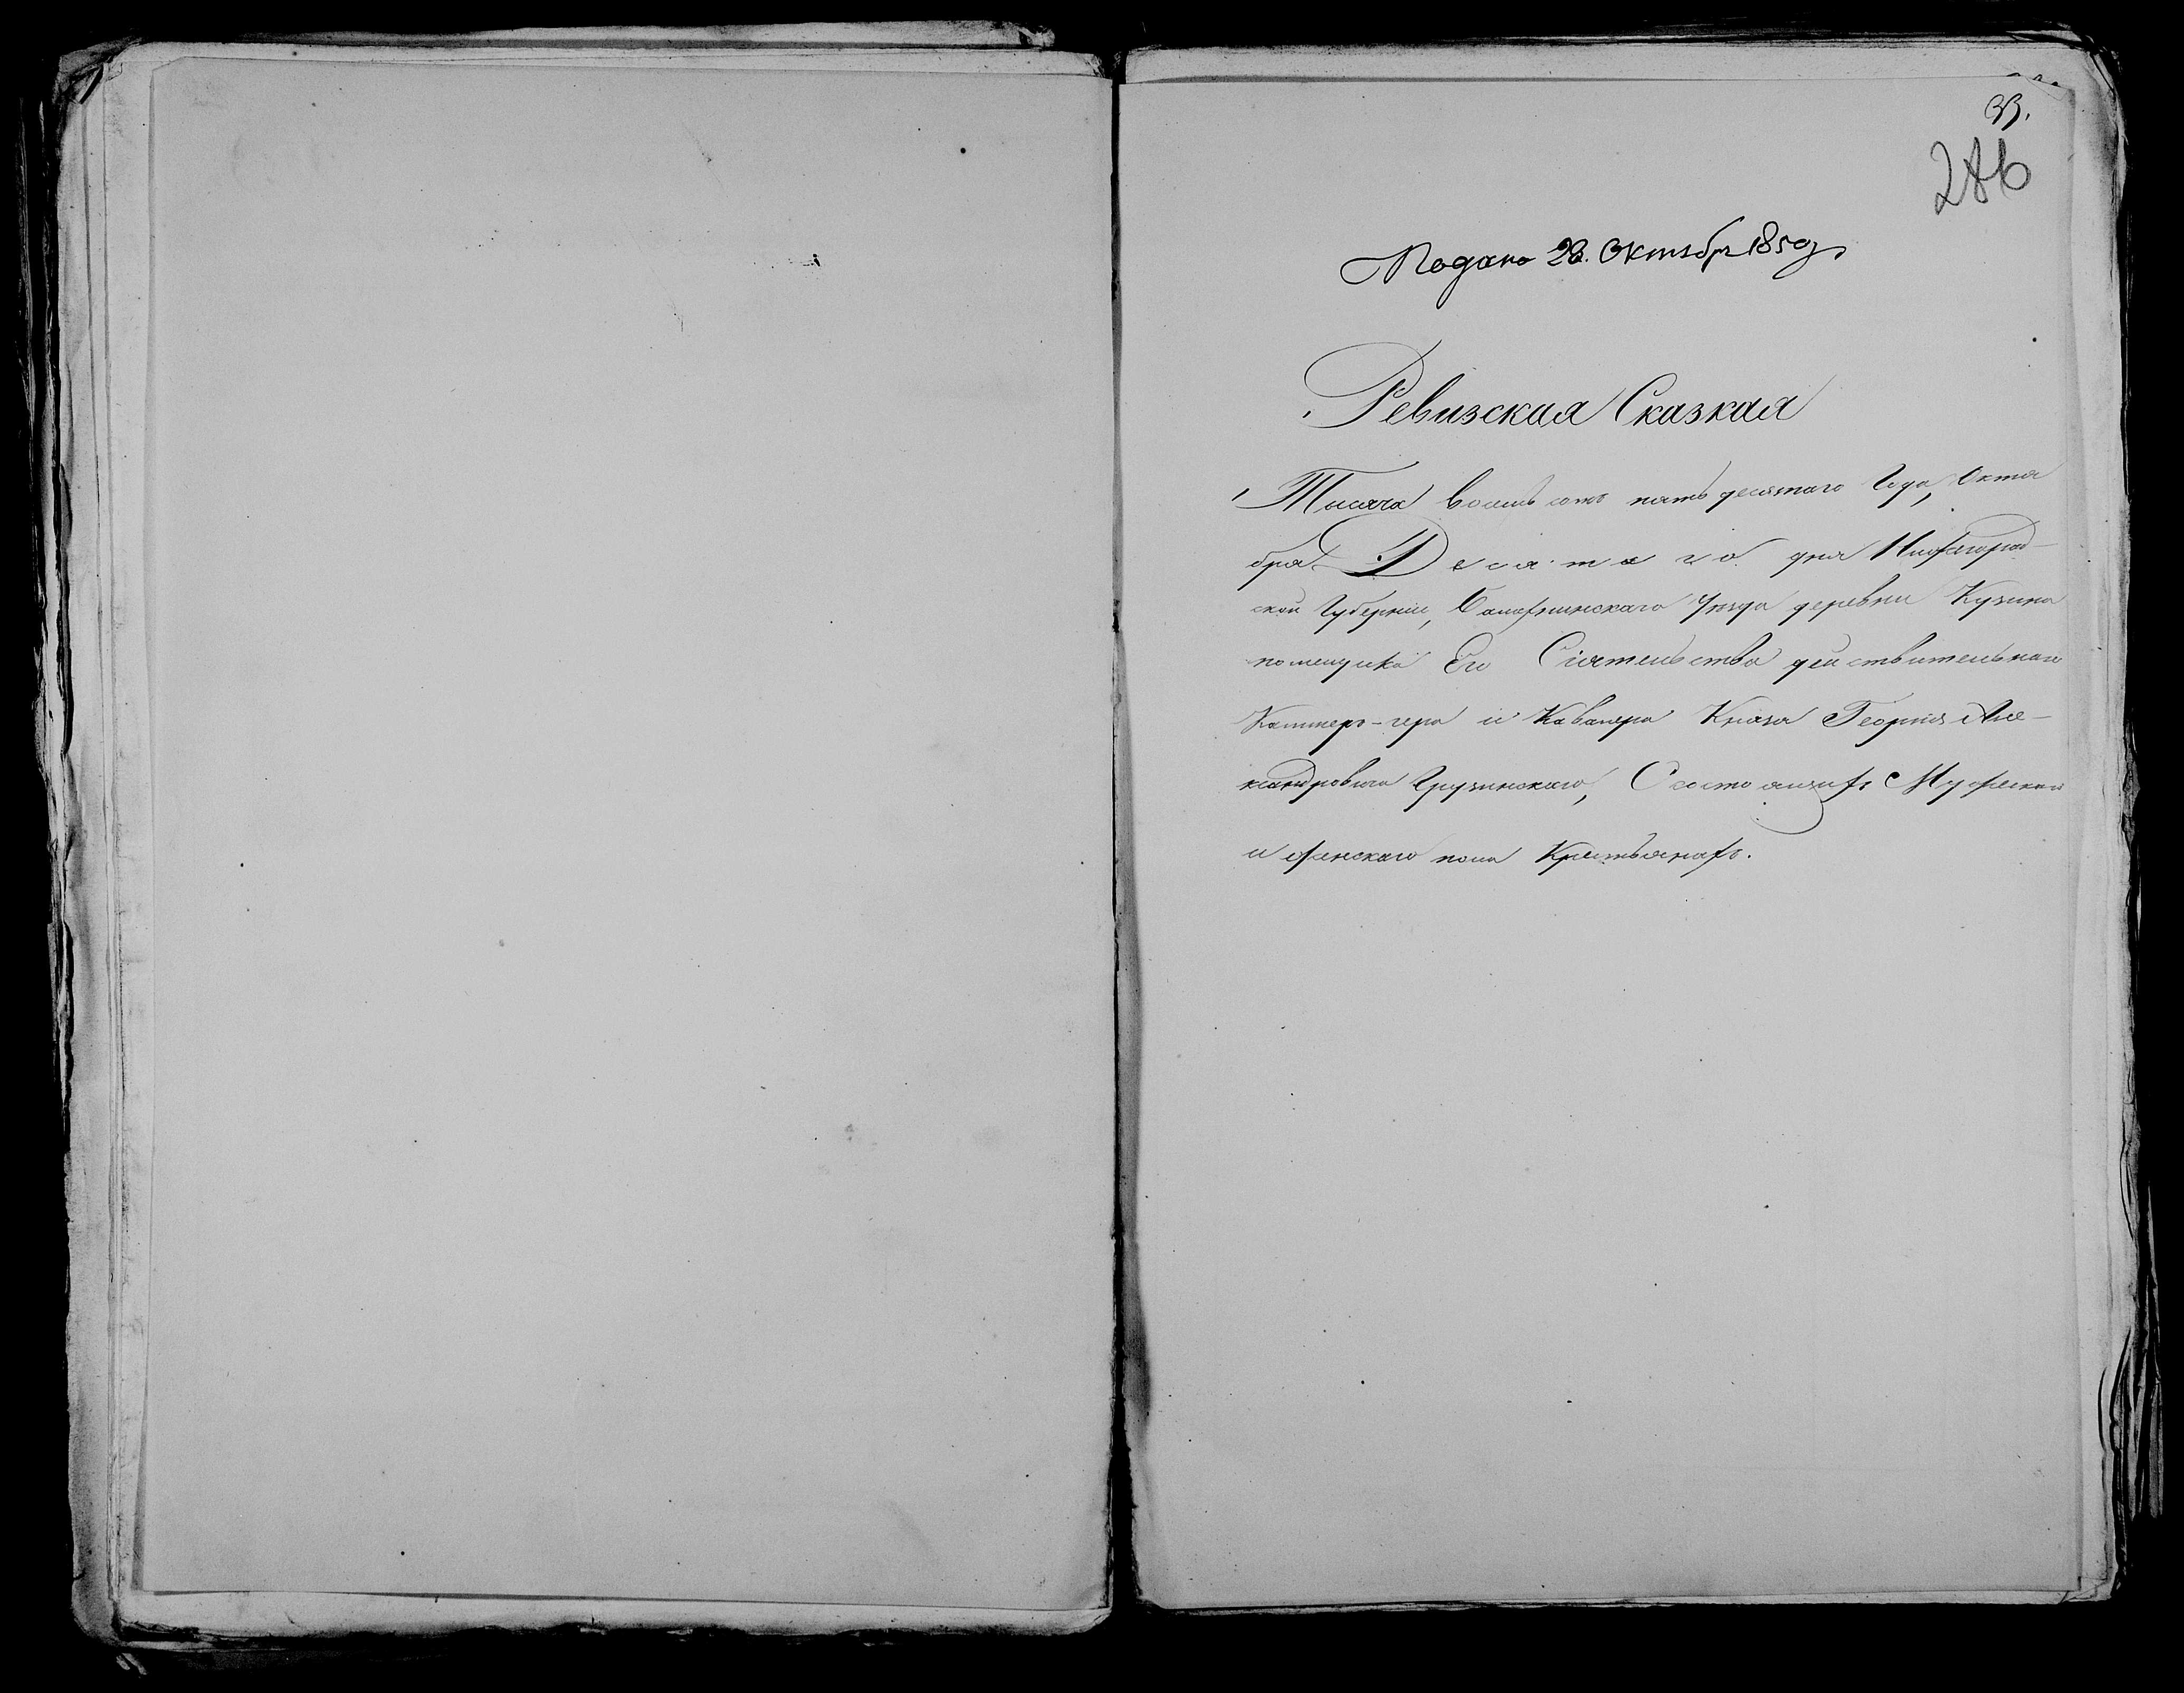 33.
286
Подано 28. Октябр 1850 г.
Ревизская Сказкая
Тысяча восемь сотъ пять десятаго Года, Октя
бря Десятаго дня Нижегород-
ской Губерніи, Балахнинскаго Уѣзда деревни Кузина
помещика Его Сіятельства действительнаго
Каммеръ-гера и Кавалера Князя Георгія Але-
ксандровича Грузинскаго, Состоящихъ Мужескаго
и женскаго пола Крестьянахъ.